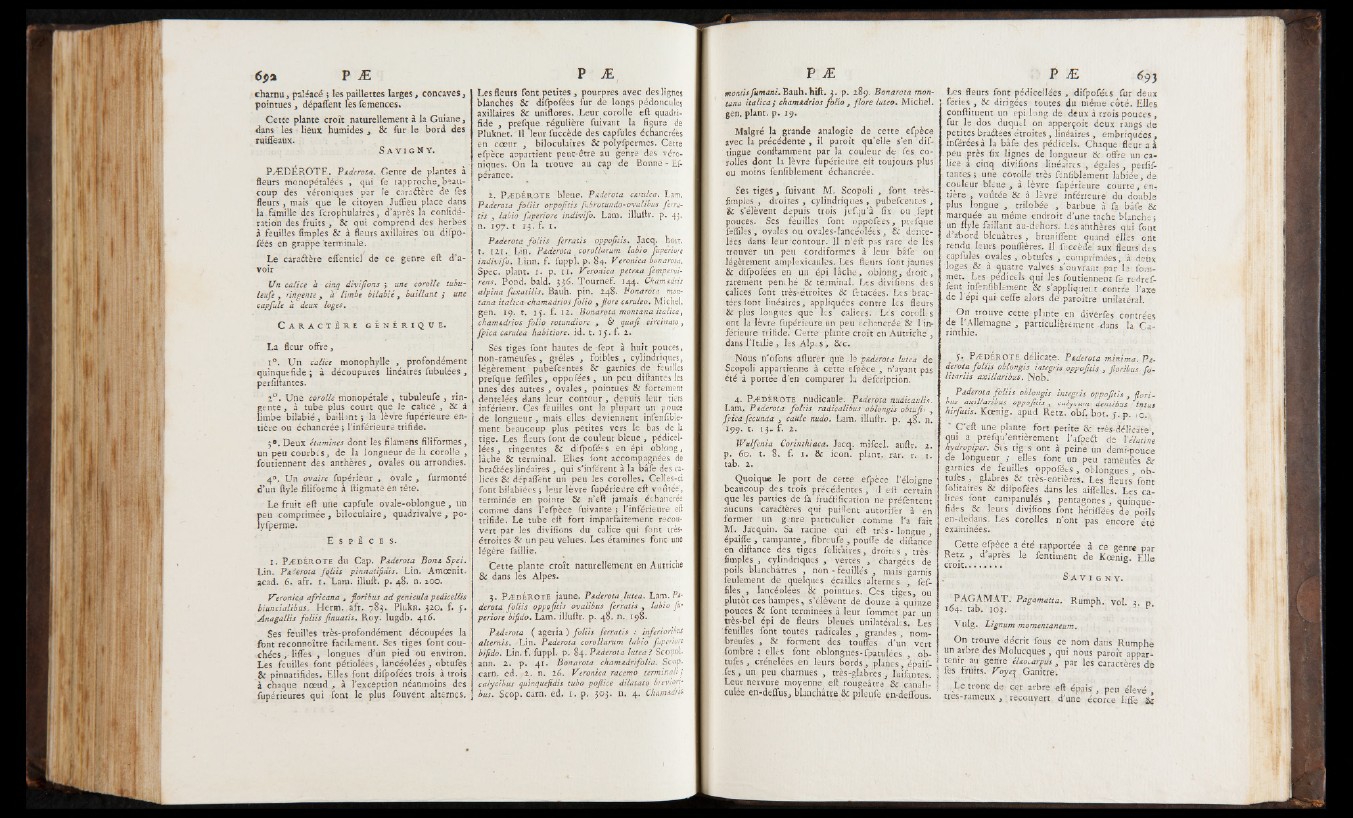 692 P Æ
charnu, paléacé ; les paillettes larges, concaves,
pointues, dépassent les semences.
Cette plante croît naturellement à la Guiane,
dans les lieux humides, & sur le bord des
ruisseaux.
SAVIGNY.
PÆDÉROTE. Pæderota. Genre de plantes à
fleurs monopétalées, qui se rapproche beau-
coup des véroniques par le caractère de ses
fleurs, mais que le citoyen Jussieu place dans
la famille des scrophulaires, d'après la considé-
ration des fruits, & qui comprend des herbes
à feuilles simples & à fleurs axillaires ou dispo-
sées en grappe terminale.
Le caractère essentiel de ce genre est d'a-
voir
Un calice à cinq divisions ; une corolle tubu-
leuse, ringente, à limbe bilabié, baillant ; une
capsule à deux loges.
CARACTÈRE GÉNÉRIQUE.
La fleur offre,
1°. Un calice monophylle, profondément
quinquefide ; à découpures linéaires subulées,
persistantes.
2°. Une corolle monopétale, tubuleuse, rin-
gente, à tube plus court que le calice, & à
limbe bilabié, baillant ; la lèvre supérieure en-
tière ou échancrée ; l'inférieure trifide.
3°. Deux étamines dont les filamens filiformes,
un peu courbés, de la longueur de la corolle,
soutiennent des anthères, ovales ou arrondies.
4°. Un ovaire supérieur, ovale, surmonté
d'un style filiforme à stigmate en tête.
Le fruit est une capsule ovale-oblongue, un
peu comprimée, biloculaire, quadrivalve, po-
lysperme.
ESPÈCES.
1. PÆDÉROTE du Cap. Pæderota Bonæ Spei.
Lin. Pæderota foliis pinnatifidis. Lin. Amœnit.
acad. 6. afr. 1. Lam. illustr. p. 48. n. 200.
Veronica africana, floribus ad genicula pedicellis
biuncialibus. Herm. afr. 783. Plukn. 320. f. 5.
Anagallis foliis sinuatis. Roy. lugdb. 416.
Ses feuilles très-profondément découpées la
font reconnoître facilement. Ses tiges sont cou-
chées, lisses, longues d'un pied ou environ.
Les feuilles sont pétiolées, lancéolées, obtuses
& pinnatifides. Elles sont disposées trois à trois
à chaque nœud, à l'exception néanmoins des
supérieures qui sont le plus souvent alternes.
P Æ
Les fleurs sont petites, pourpres avec des lignes
blanches & disposées sur de longs pédoncules
axillaires & uniflores. Leur corolle est quadri-
fide, presque régulière suivant la figure de
Pluknet. Il leur succède des capsules échancrées
en cœur, biloculaires & polyspermes. Cette
espèce appartient peut-être au genre des véro-
niques. On la trouve au cap de Bonne-Es-
pérance.
2. PÆDÉROTE bleue. Pæderota cærulea. Lam.
Pæderota foliis oppositis subrotundo-ovalibus serra-
tis, labio superiore indiviso. Lam. illustr. p. 43.
n. 197. t 13. f. 1.
Pæderota foliis serratis oppositis. Jacq. hort.
t. 121. Lin. Pæderota corollarum labio superiore
indiviso. Linn. f. suppl. p. 84. Veronica bonarota.
Spec. plant. 1. p. 11. Veronica petræa sempervi-
rens. Pond. bald. 336. Tournef. 144. Chamædris
alpina saxatilis. Bauh. pin. 248. Bonarota mon-
tana italica chamædrios folio, flore cæruleo. Michel.
gen. 19. t. 15. f. 12. Bonarota montana italica,
chamædrios folio rotundiore, & quasi circinato,
spica cærulea habitiore. id. t. 15. f. 2.
Ses tiges sont hautes de sept à huit pouces,
non-rameuses, grêles, foibles, cylindriques,
légèrement pubescentes & garnies de feuilles
presque sessiles, opposées, un peu distantes les
unes des autres, ovales, pointues & fortement
dentelées dans leur contour, depuis leur tiers
inférieur. Ces feuilles ont la plupart un pouce
de longueur, mais elles deviennent insensible-
ment beaucoup plus petites vers le bas de la
tige. Les fleurs sont de couleur bleue, pédicel-
lées, ringentes & disposées en épi oblong,
lâche & terminal. Elles sont accompagnées de
bractées linéaires, qui s'insèrent à la base des ca-
lices & dépassent un peu les corolles. Celles-ci
sont bilabiées ; leur lèvre supérieure est voûtée,
terminée en pointe & n'est jamais échancrée
comme dans l'espèce suivante ; l'inférieure est
trifide. Le tube est fort imparfaitement recou-
vert par les divisions du calice qui sont très-
étroites & un peu velues. Les étamines font une
légère saillie.
Cette plante croît naturellement en Autriche
& dans les Alpes.
3. PÆDÉROTE jaune. Pæderota lutea. Lam. Pæ-
derota foliis oppositis ovalibus serratis, labio su-
periore bifido. Lam. illustr. p. 48. n. 198.
Pæderota (ageria) foliis serratis : inferioribus
alternis. Lin. Pæderota corollarum labio superiori
bifido. Lin. f. suppl. p. 84. Pæderota lutea? Scopol.
ann. 2. p. 41. Bonarota chamædrifolia. Scop.
carn. ed. 2. n. 26. Veronica racemo terminali ;
calycibus quinquefidis tubo postice dilatato breviori-
bus. Scop. carn. ed. 1. p. 303. n. 4. Chamædris
P Æ
montis sumani. Bauh. hist. 3. p. 289. Bonarota mon-
tana italica ; chamædrios folio, flore luteo. Michel.
gen. plant. p. 19.
Malgré la grande analogie de cette espèce
avec la précédente, il paroît qu'elle s'en dis-
tingue constamment par la couleur de ses co-
rolles dont la lèvre supérieure est toujours plus
ou moins sensiblement échancrée.
Ses tiges, suivant M. Scopoli, sont très-
simples, droites, cylindriques, pubescentes,
& s'élèvent depuis trois jusqu'à six ou sept
pouces. Ses feuilles sont opposées, presque
sessiles, ovales ou ovales-lancéolées, & dente-
lées dans leur contour. Il n'est pas rare de les
trouver un peu cordiformes à leur base ou
légèrement amplexicaules. Les fleurs sont jaunes
& disposées en un épi lâche, oblong, droit,
rarement penché & terminal. Les divisions des
calices sont très-étroites & sétacées. Les brac-
tées sont linéaires, appliquées contre les fleurs
& plus longues que les calices. Les corolles
ont la lèvre supérieure un peu échancrée & l'in-
férieure trifide. Cette plante croît en Autriche,
dans l'Italie, les Alpes, &c.
Nous n'osons assurer que le pæderota lutea de
Scopoli appartienne à cette espèce, n'ayant pas
été à portée d'en comparer la description.
4. PÆDÉROTE nudicaule. Pæderota nudicaulis.
Lam. Pæderota foliis radicalibus oblongis obtusis,
spica secunda, caule nudo. Lam. illustr. p. 48. n.
199. t. 13. f. 2.
Wulfenia Corinthiaca. Jacq. miscel. austr. 2.
p. 60. t. 8. f. 1. & icon. plant. rar. t. 1.
tab. 2.
Quoique le port de cette espèce l'éloigne
beaucoup des trois précédentes, il est certain
que les parties de sa fructification ne présentent
aucuns caractères qui puissent autoriser à en
former un genre particulier comme l'a fait
M. Jacquin. Sa racine qui est très-longue,
épaisse, rampante, fibreuse, pousse de distance
en distance des tiges solitaires, droites, très
simples, cylindriques, vertes, chargées de
poils blanchâtres, non-feuillés, mais garnis
seulement de quelques écailles alternes, ses-
siles, lancéolées & pointues. Ces tiges, ou
plutôt ces hampes, s'élèvent de douze à quinze
pouces & sont terminées à leur sommet par un
très-bel épi de fleurs bleues unilatérales. Les
feuilles sont toutes radicales, grandes, nom-
breuses, & forment des touffes d'un vert
sombre : elles sont oblongues-spatulées, ob-
tuses, crénelées en leurs bords, planes, épais-
ses, un peu charnues, très-glabres, luisantes.
Leur nervure moyenne est rougeâtre & canali-
culée en-dessus, blanchâtre & pileuse en-dessous.
P Æ 693
Les fleurs sont pédicellées, disposées sur deux
séries, & dirigées toutes du même côté. Elles
constituent un épi long de deux à trois pouces,
sur le dos duquel on apperçoit deux rangs de
petites bractées étroites, linéaires, embriquées,
insérées à la base des pédicels. Chaque fleur a à
peu près six lignes de longueur & offre un ca-
lice à cinq divisions linéaires, égales, persis-
tantes ; une corolle très sensiblement labiée, de
couleur bleue, à lèvre supérieure courte, en-
tière, voûtée & à lèvre inférieure du double
plus longue, trilobée, barbue à sa base &
marquée au même endroit d'une tache blanche ;
un style saillant au-dehors. Les anthères qui sont
d'abord bleuâtres, brunissent quand elles ont
rendu leurs poussières. Il succède aux fleurs des
capsules ovales, obtuses, comprimées, à deux
loges & à quatre valves s'ouvrant par le som-
met. Les pédicels qui les soutiennent se redres-
sent insensiblement & s'appliquent contre l'axe
de l'épi qui cesse alors de paroître unilatéral.
On trouve cette plante en diverses contrées
de l'Allemagne, particulièrement dans la Ca-
rinthie.
5. PÆDÉROTE délicate. Pæderota minima. Pæ-
derota foliis oblongis integris oppositis, floribus so-
litariis axillaribus. Nob.
Pæderota foliis oblongis integris oppositis, flori-
bus axillaribus oppositis, calycum dentibus intus
hirsutis. Kœnig. apud Retz. obs. bot. 5. p. 10.
C'est une plante fort petite & très-délicate,
qui a presqu'entièrement l'aspect de l'élatine
hydropiper. Ses tiges ont à peine un demi-pouce
de longueur ; elles sont un peu rameuses &
garnies de feuilles opposées, oblongues, ob-
tuses, glabres & très-entières. Les fleurs sont
solitaires & disposées dans les aisselles. Les ca-
lices sont campanulés, pentagones, quinque-
fides & leurs divisions sont hérissées de poils
en-dedans. Les corolles n'ont pas encore été
examinées.
Cette espèce a été rapportée à ce genre par
Retz, d'après le sentiment de Kœnig. Elle
croît........
SAVIGNY.
PAGAMAT. Pagamatta. Rumph. vol. 3. p.
164. tab. 103.
Vulg. Lignum momentaneum.
On trouve décrit sous ce nom dans Rumphe
un arbre des Molucques, qui nous paroît appar-
tenir au genre elæocarpus, par les caractères de
ses fruits. Voyez Ganitre.
Le tronc de cet arbre est épais, peu élevé,
très-rameux, recouvert d'une écorce lisse &